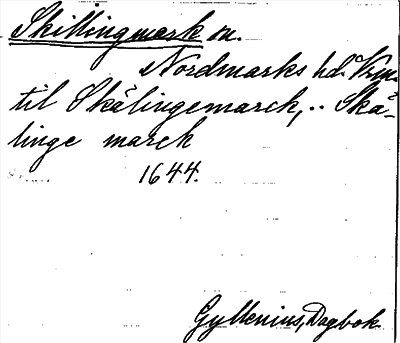 Skillingmark sn.
Nordmarks hd. Vrm.
til Skålingemarck, .. Skå-
linge marck
1644.
Gyllenius, Dagbok.